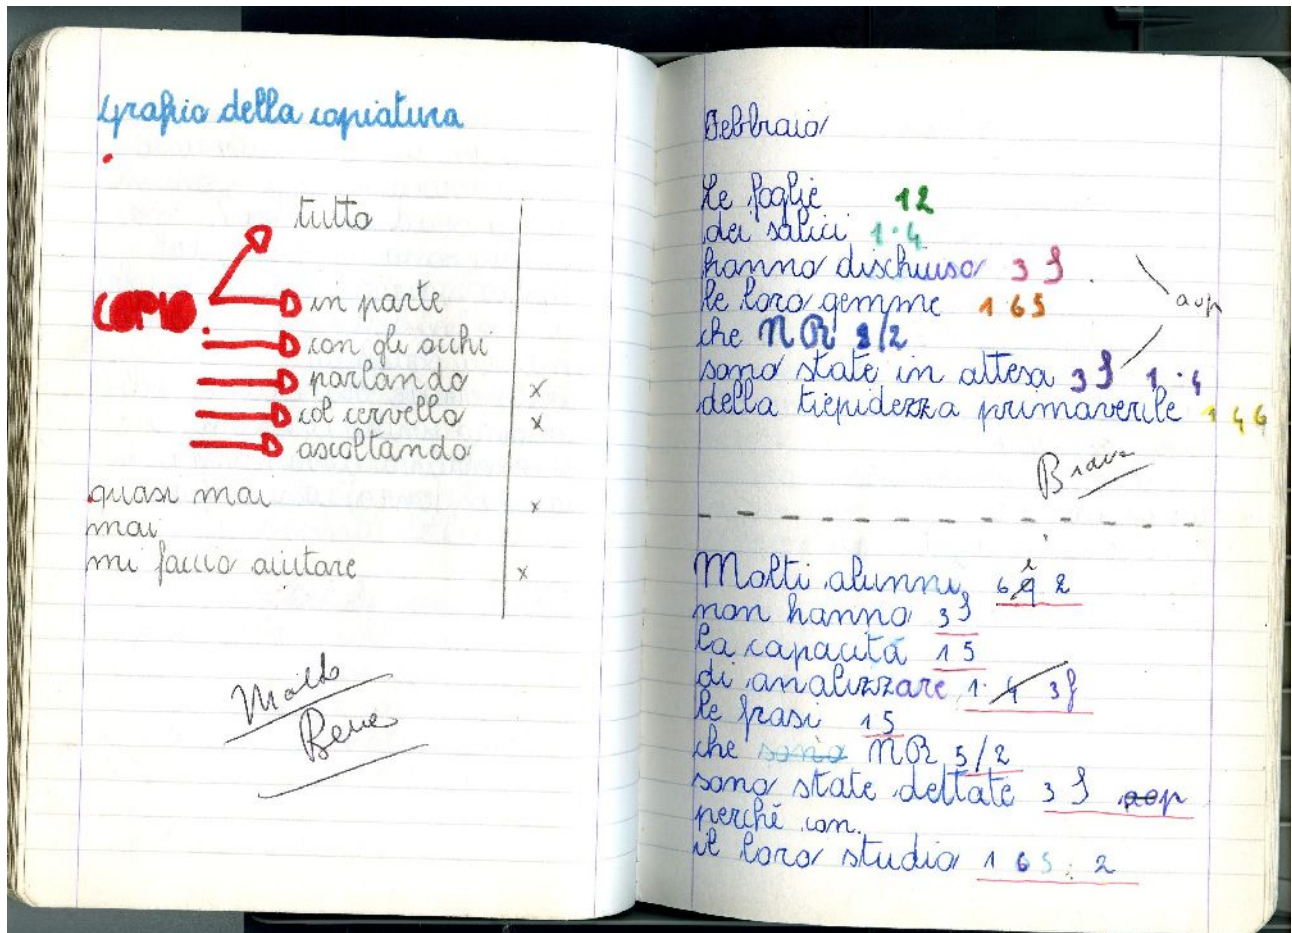 Grafico della copiatura
tutto
COPIO
in parte
con gli occhi
parlando x
col cervello x
ascoltando
quasi mai x
mai
mi faccio aiutare x
Molto
Bene
Febbraio
Le foglie 12
dei salici 1·4
hanno dischiuso 3 S
le loro gemme 1 6 5
aop
che NR 2/2
sono state in attesa 3 S 1·4
della tiepidezza primaverile 1 4 6
Brava
Molti alunni 6 i 2
non hanno 3 S
la capacità 1 5
di analizzare 1· 4 3 S
le frasi 1 5
che sono NR 5/2
sono state dettate 3 S aop
perché con
il loro studio 1 6 5 2